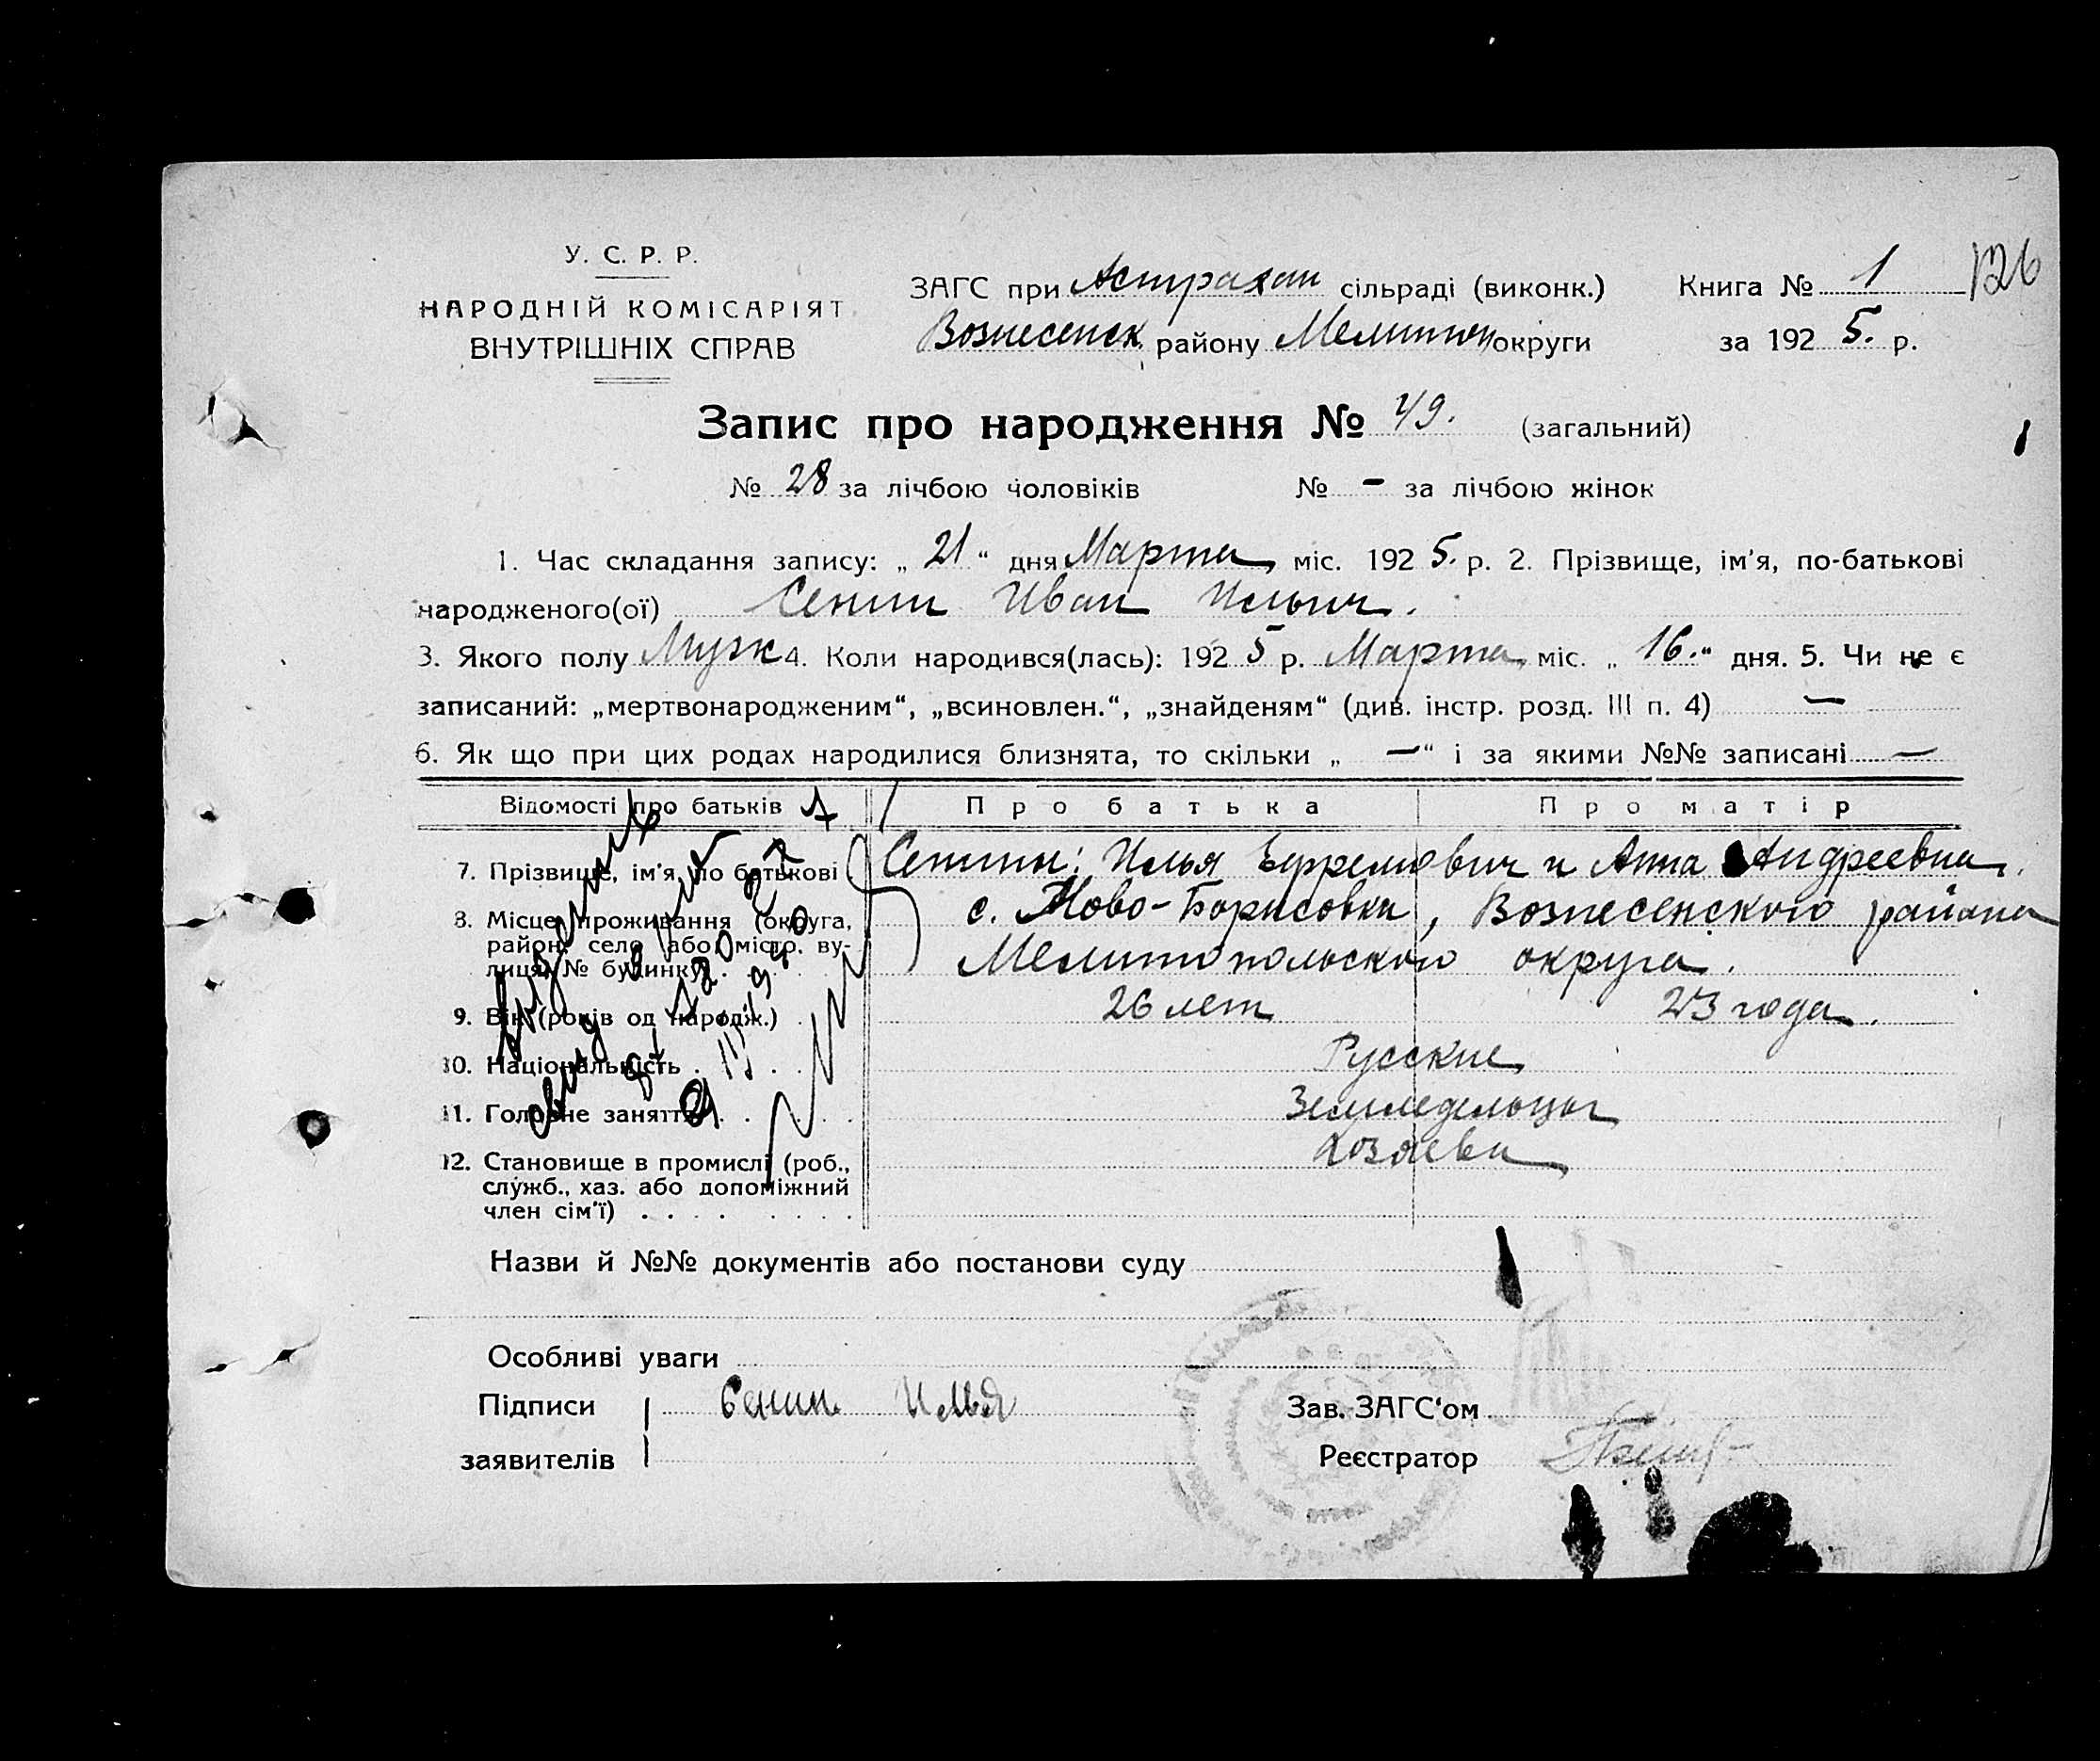 У. С. Р. Р.
НАРОДНІЙ КОМІСАРІЯТ
ВНУТРІШНІХ СПРАВ
ЗАГС при Астрахан сільраді (виконк.) Книга № 1 126
Вознесенск. району Мелитоп округи за 1925. р.
Запис про народження № 49. (загальний)
№ 28 за лічбою чоловіків № — за лічбою жінок
1. Час складання запису: „21“ дня Марта міс. 1925. р. 2. Прізвище, ім'я, по-батькові
народженого(ої) Сенин Иван Ильич.
3. Якого полу Муж 4. Коли народився(лась): 1925 р. Марта міс. „16.“ дня. 5. Чи не є
записаний: „мертвонародженим“, „всиновлен.“, „знайденям“ (див. інстр. розд. III п. 4) —
6. Як що при цих родах народилися близнята, то скільки „—“ і за якими №№ записані —
Відомості про батьків Про батька Про матір
7. Прізвище, ім'я, по батькові Сенины: Илья Ефремович и Анна Андреевна.
8. Місце проживання (округа, с. Ново-Борисовки, Вознесенского района
район, село або місто, ву-
лиця, № будинку) . . Мелитопольского округа.
9. Вік (років од народж.) . 26 лет 23 года.
10. Національність . . . . Русские
11. Головне заняття . . . . Земледельцы
12. Становище в промислі (роб., Хозяева
служб., хаз. або допоміжний
член сім'ї) . . . . . . . .
Назви й №№ документів або постанови суду
Особливі уваги
Підписи Сенин Илья Зав. ЗАГС'ом
заявителів Реєстратор